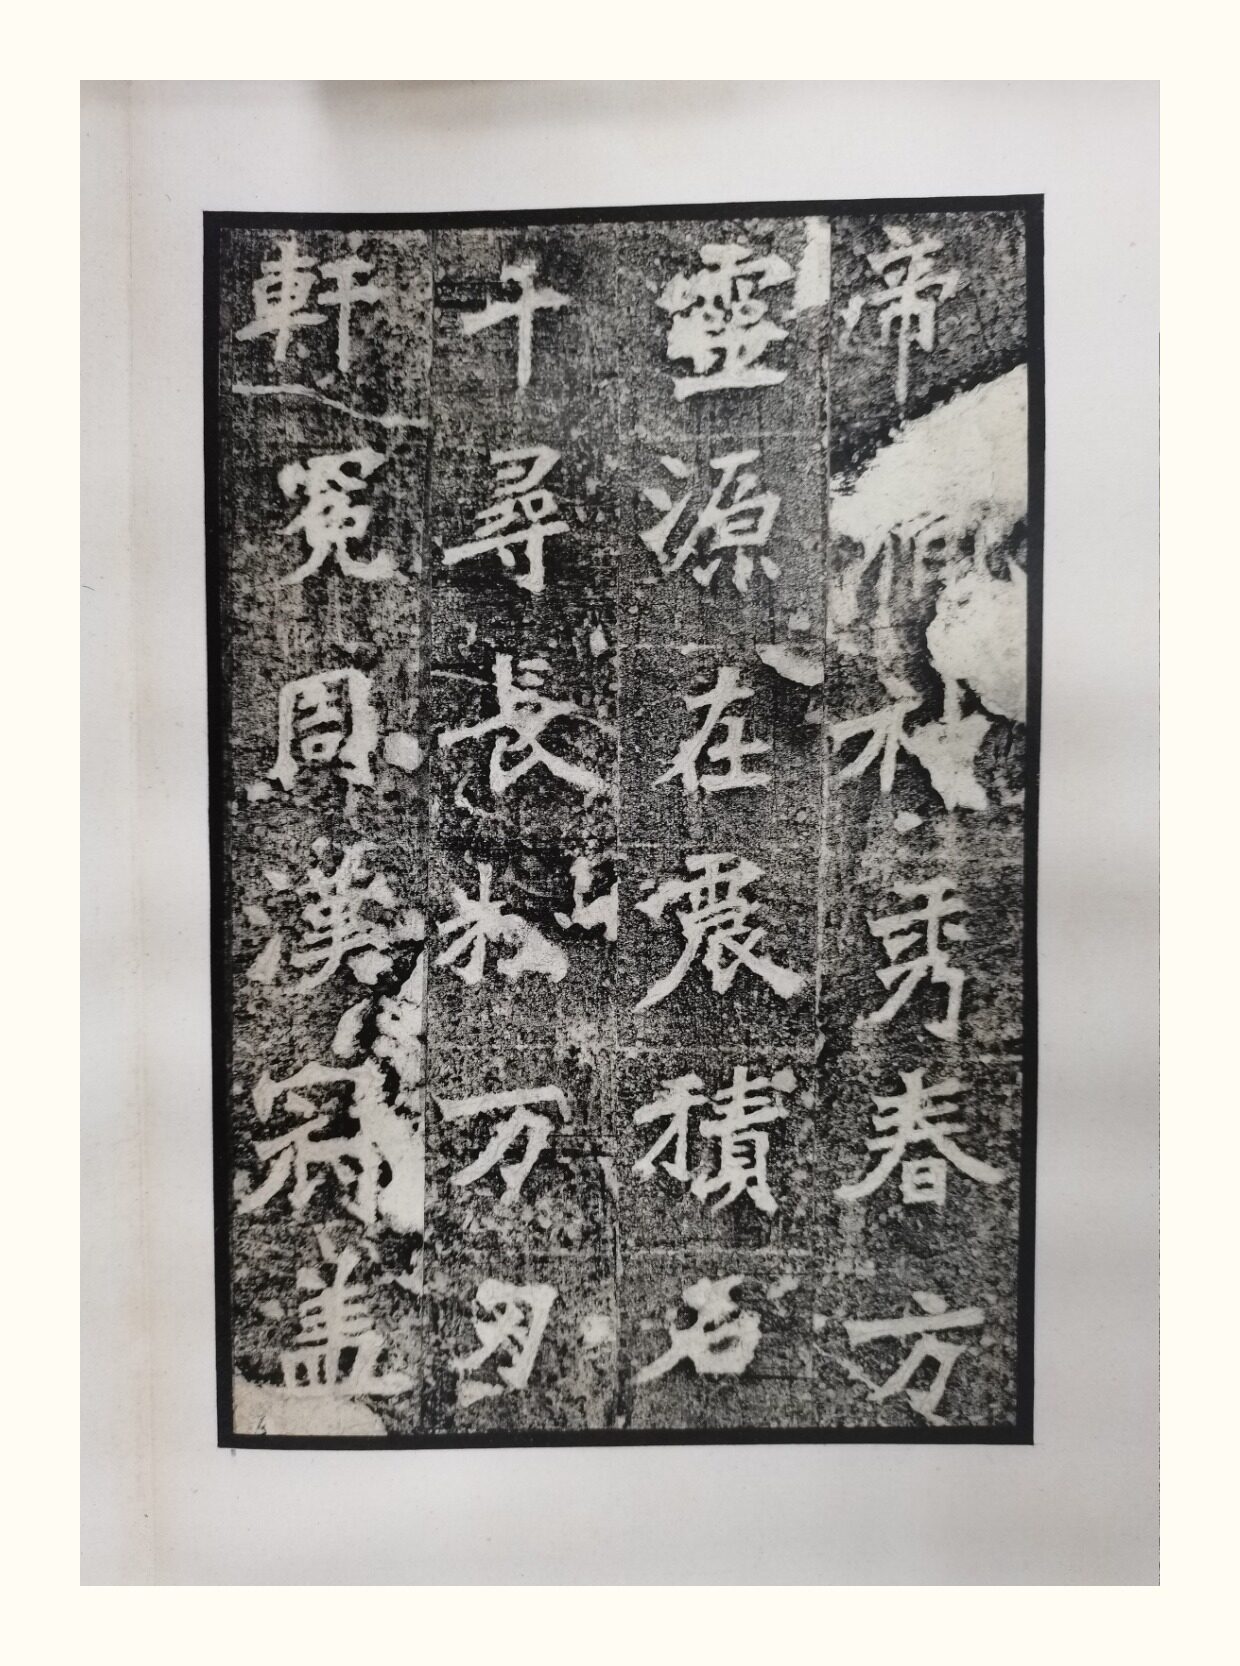 帝秀春方
靈源在震積石
千尋長松万刃
軒冕周漢冠盖